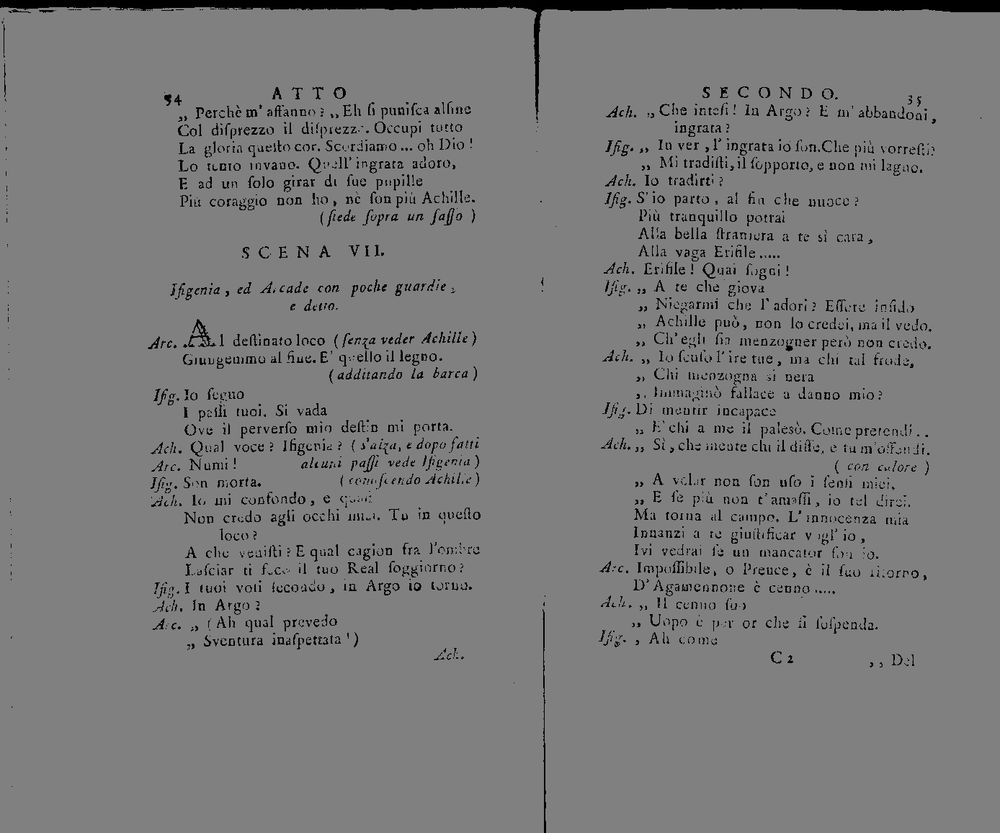 34 ATTO
„ Perchè m' affanno? „ Eh ſi puniſca alfine
Col diſprezzo il diſprezzo. Occupi tutto
La gloria queſto cor. Scordiamo ... oh Dio!
Lo tento invano. Quell' ingrata adoro,
E ad un ſolo girar di ſue pupille
Più coraggio non ho, nè ſon più Achille.
(ſiede ſopra un ſaſſo)
SCENA VII.
Ifigenia, ed Arcade con poche guardie,
e detto.
Arc. Al deſtinato loco (ſenza veder Achille)
Giungemmo al fine. E' quello il legno.
(additando la barca)
Ifig. Io ſeguo
I paſſi tuoi. Si vada
Ove il perverſo mio deſtin mi porta.
Ach. Qual voce? Ifigenia? (s'alza, e dopo fatti
Arc. Numi! alcuni paſſi vede Ifigenia)
Ifig. Son morta. (conoſcendo Achille)
Ach. Io mi confondo, e quaſi
Non credo agli occhi miei. Tu in queſto
loco?
A che veniſti? E qual cagion fra l'ombre
Laſciar ti fece il tuo Real ſoggiorno?
Ifig. I tuoi voti ſecondo, in Argo io torno.
Ach. In Argo?
Arc. „ (Ah qual prevedo
„ Sventura inaſpettata!)
Ach.
SECONDO. 35
Ach. „ Che inteſi! In Argo? E m' abbandoni,
ingrata?
Ifig. „ In ver, l' ingrata io ſon. Che più vorreſti?
„ Mi tradiſti, il ſopporto, e non mi lagno.
Ach. Io tradirti?
Ifig. S'io parto, al fin che nuoce?
Più tranquillo potrai
Alla bella ſtraniera a te sì cara,
Alla vaga Erifile.....
Ach. Erifile! Quai ſogni!
Ifig. „ A te che giova
„ Niegarmi che l' adori? Eſſere infido
„ Achille può, non lo credei, ma il vedo.
„ Ch' egli ſia menzogner però non credo.
Ach. „ Io ſcuſo l' ire tue, ma chi tal frode,
„ Chi menzogna sì nera
„ Immaginò fallace a danno mio?
Ifig. Di mentir incapace
„ E' chi a me il palesò. Come pretendi..
Ach. „ Sì, che mente chi il diſſe, e tu m'offendi.
(con calore)
„ A velar non ſon uſo i ſenſi miei.
„ E ſe più non t'amaſſi, io tel direi.
Ma torna al campo. L' innocenza mia
Innanzi a te giuſtificar vogl' io,
Ivi vedrai ſe un mancator ſon io.
Arc. Impoſſibile, o Prence, è il ſuo ritorno,
D' Agamennone è cenno.....
Ach. „ Il cenno ſuo
„ Uopo è per or che ſi ſoſpenda.
Ifig. , Ah come
C 2 ,, Del